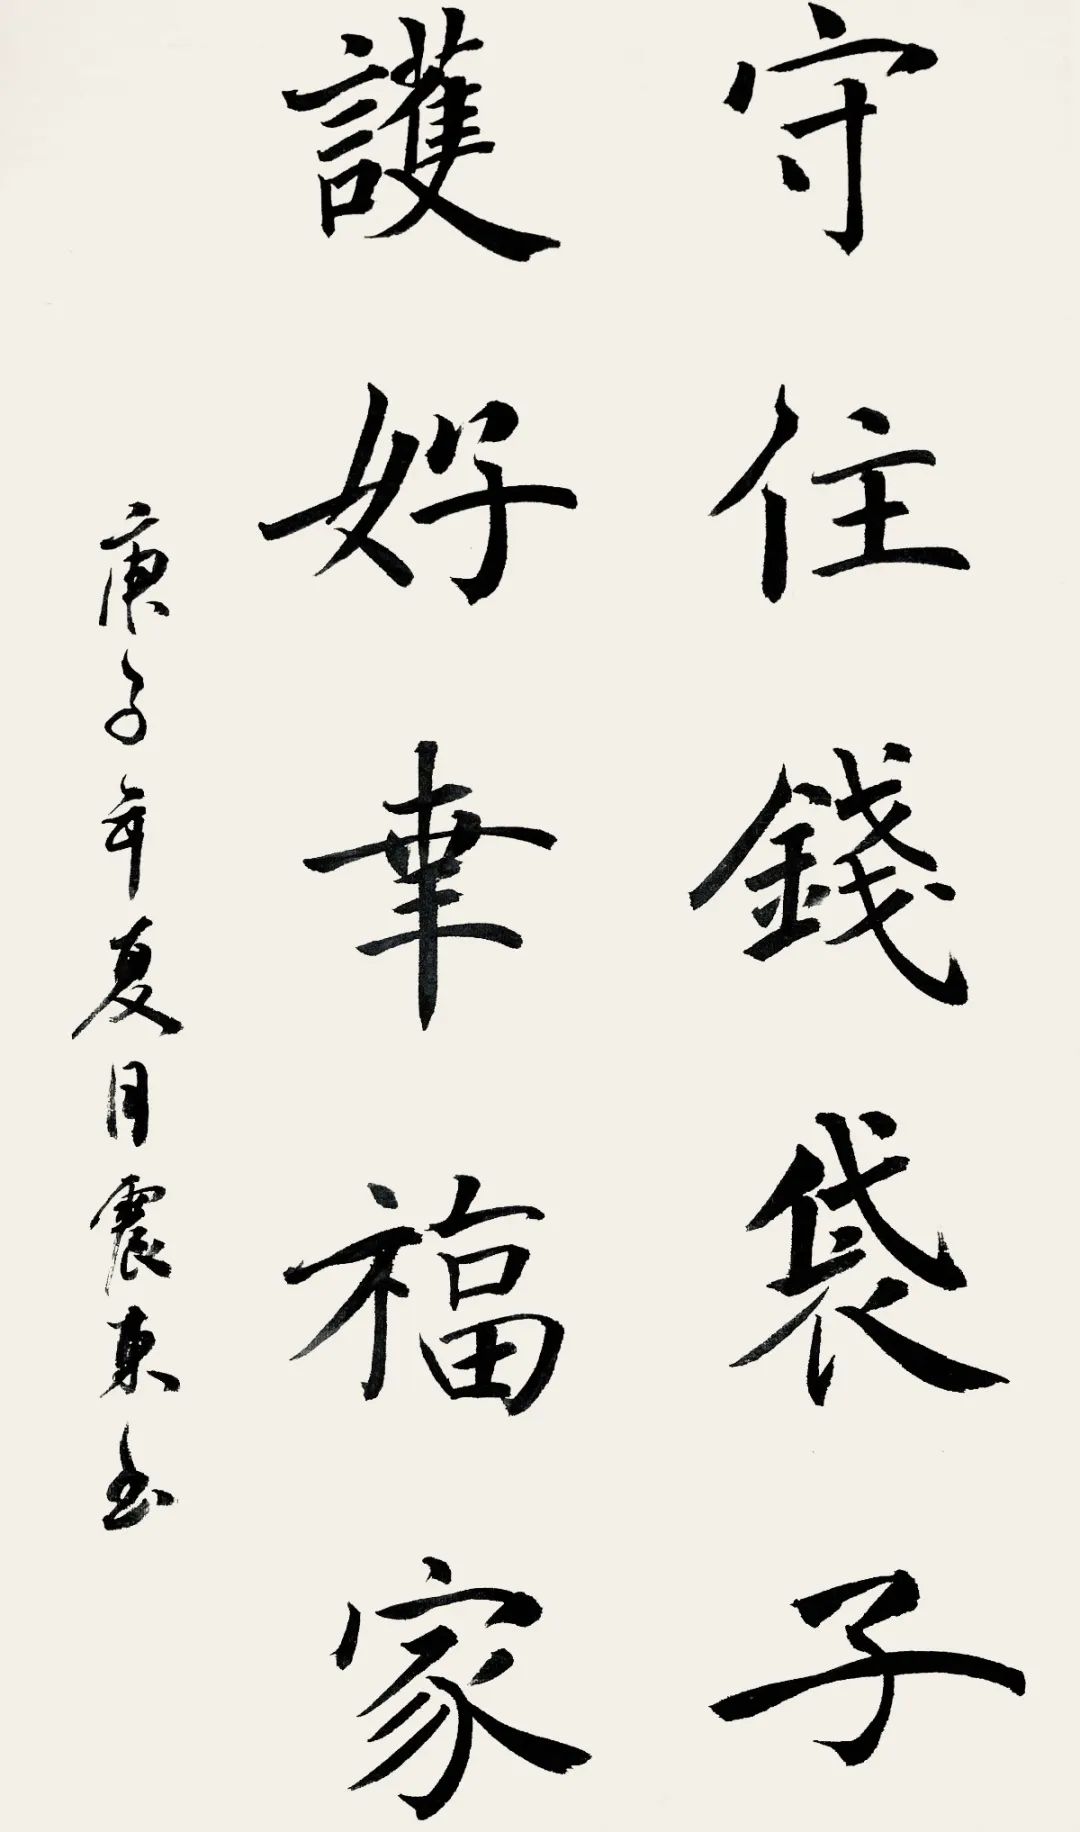 守住錢袋子
護好幸福家
庚子年夏月震東书